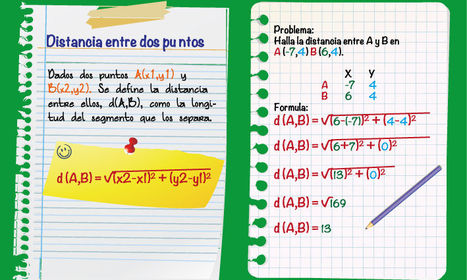 Distancia entre dos puntos
Dados dos puntos A(x1,y1) y
B(x2,y2). Se define la distancia
entre ellos, d(A,B), como la longi-
tud del segmento que los separa.
d (A,B) = √(x2-x1)² + (y2-y1)²
Problema:
Halla la distancia entre A y B en
A (-7,4) B (6,4).
X Y
A -7 4
B 6 4
Formula:
d (A,B) = √(6-(-7))² + (4-4)²
d (A,B) = √(6+7)² + (0)²
d (A,B) = √(13)² + (0)²
d (A,B) = √169
d (A,B) = 13